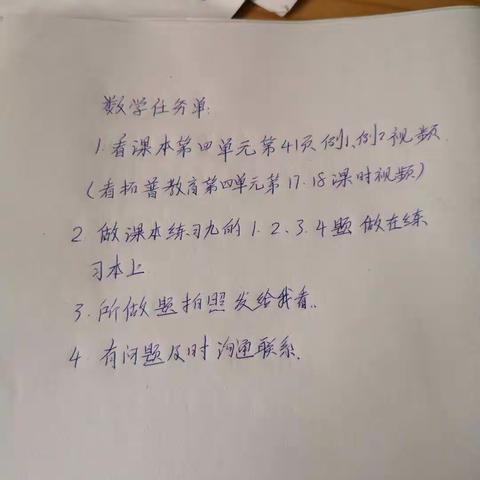 数学任务单:
1.看课本第四单元第41页例1、例2视频.
(看拓普教育第四单元第17.18课时视频)
2.做课本练习九的1.2.3.4题做在练
习本上
3.所做题拍照发给我看..
4.有问题及时沟通联系.